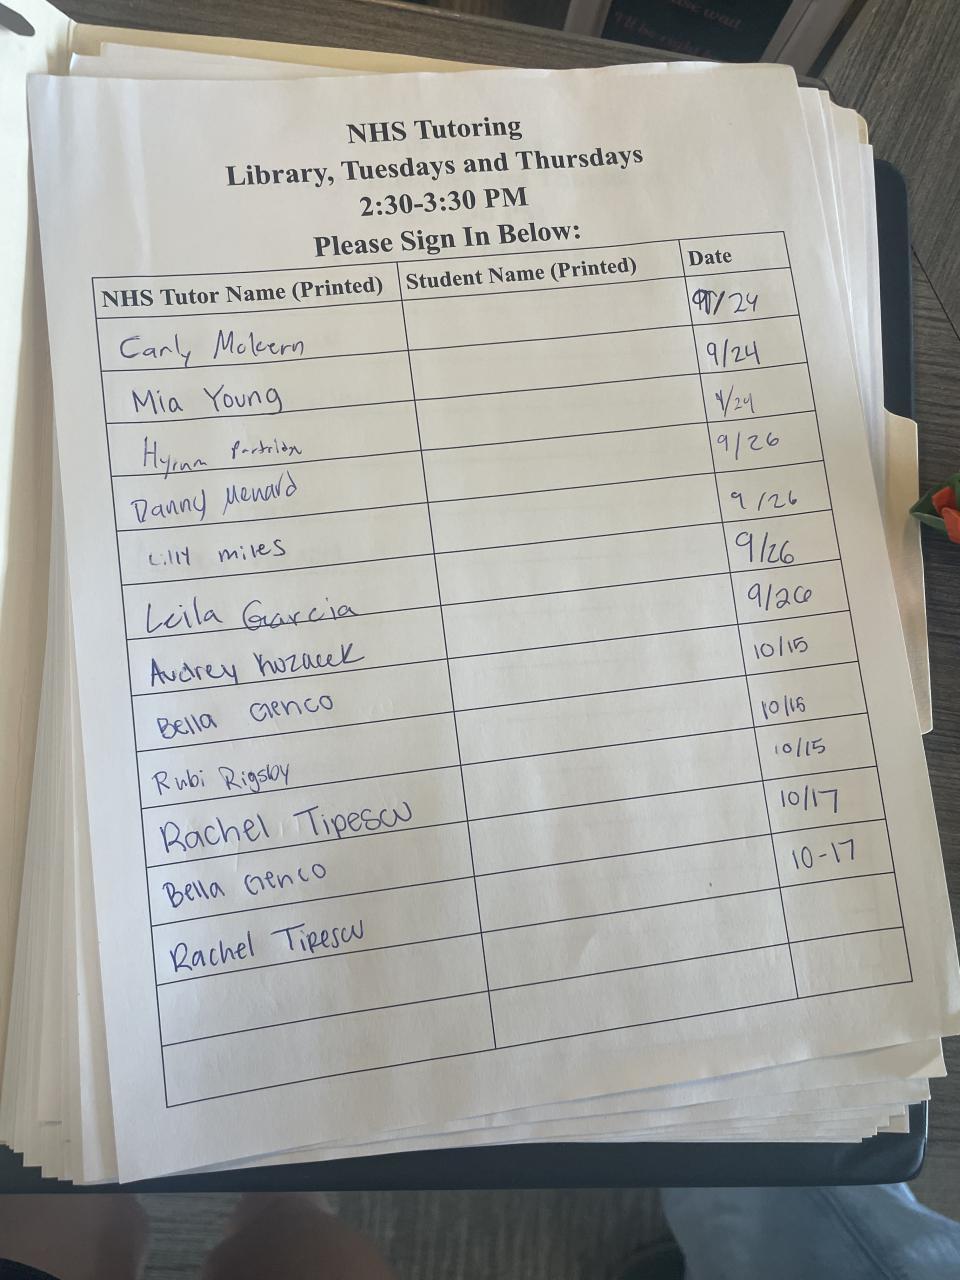 wait
I'll be right
NHS Tutoring
Library, Tuesdays and Thursdays
2:30-3:30 PM
Please Sign In Below:
NHS Tutor Name (Printed) Student Name (Printed) Date
Carly 9/24
Mia Young 9/24
Hyrum 9/24
Danny Menard 9/26
Lilly miles 9/26
Leila Garcia 9/26
Audrey Kozacek 9/26
Bella Genco 10/15
Rubi Rigsby 10/15
Rachel Tipescu 10/15
Bella Genco 10/17
Rachel Tipescu 10-17